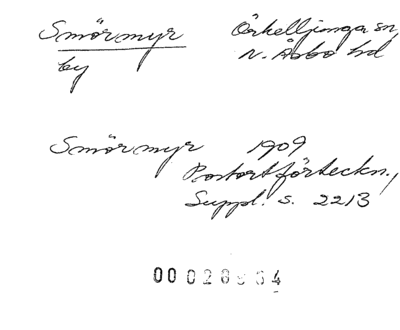 Smörmyr Örkelljunga sn,
by N. Åsbo hd
Smörmyr 1909
Postortförteckn.,
Suppl. s. 2213